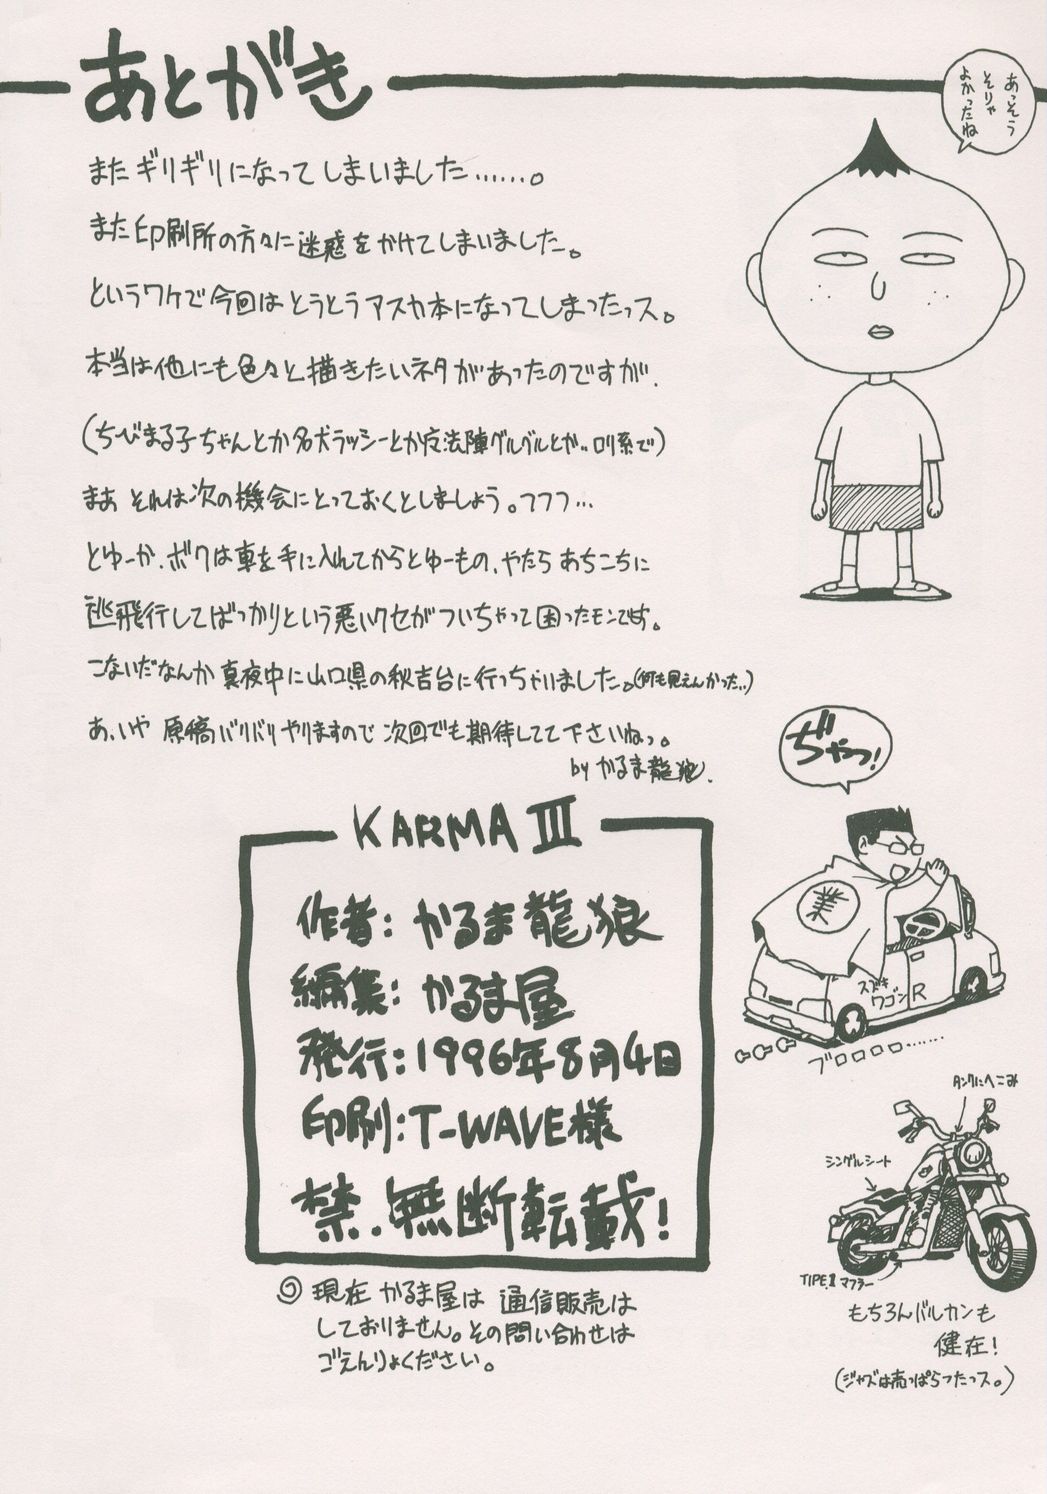 あとがき
あっそう
そりゃ
よかったね
またギリギリになってしまいました……。
また印刷所の方々に迷惑をかけてしまいました。
というワケで今回はとうとうアスカ本になってしまったっス。
本当は他にも色々と描きたいネタがあったのですが、
(ちびまる子ちゃんとか名犬ラッシーとか魔法陣グルグルとか‥ロリ系で)
まあ それは次の機会にとっておくとしましょう。フフフ…
とゆーか、ボクは車を手に入れてからとゆーもの、やたら あちこちに
逃飛行してばっかりという悪いクセがついちゃって困ったモンです。
こないだなんか 真夜中に山口県の秋吉台に行っちゃいました。(何も見えんかった‥)
あ、いや 原稿バリバリやりますので 次回でも期待してて下さいねっ。
by かるま龍狼.
ぢゃっ!
業
スズキ
ワゴンR
ブロロロロ……
KARMA III
作者: かるま龍狼
編集: かるま屋
発行: 1996年8月4日
印刷: T-WAVE様
禁.無断転載!
◎ 現在 かるま屋は 通信販売は
しておりません。その問い合わせは
ごえんりょください。
タンクにヘこみ
シングルシート
TIPE.II マフラー
もちろんバルカンも
健在!
(ジャズは売っぱらったっス。)